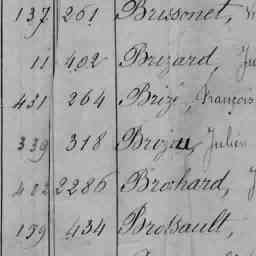 137 261 Brissonet,
11 402 Brizard, Ju
431 264 Brizé, François
339 318 Julien
422 2286 Brochard, J
159 434 Brossault,